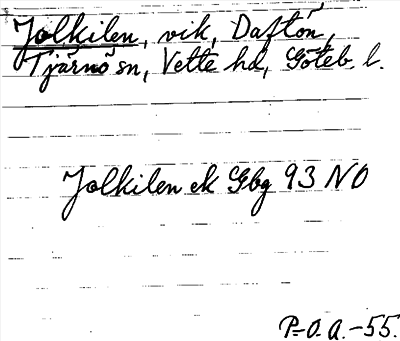 Jolkilen, vik, Daftön,
Tjärnö sn, Vette hd, Göteb. l.
Jolkilen ek Gbg 93 NO
P.-O. A. -55.